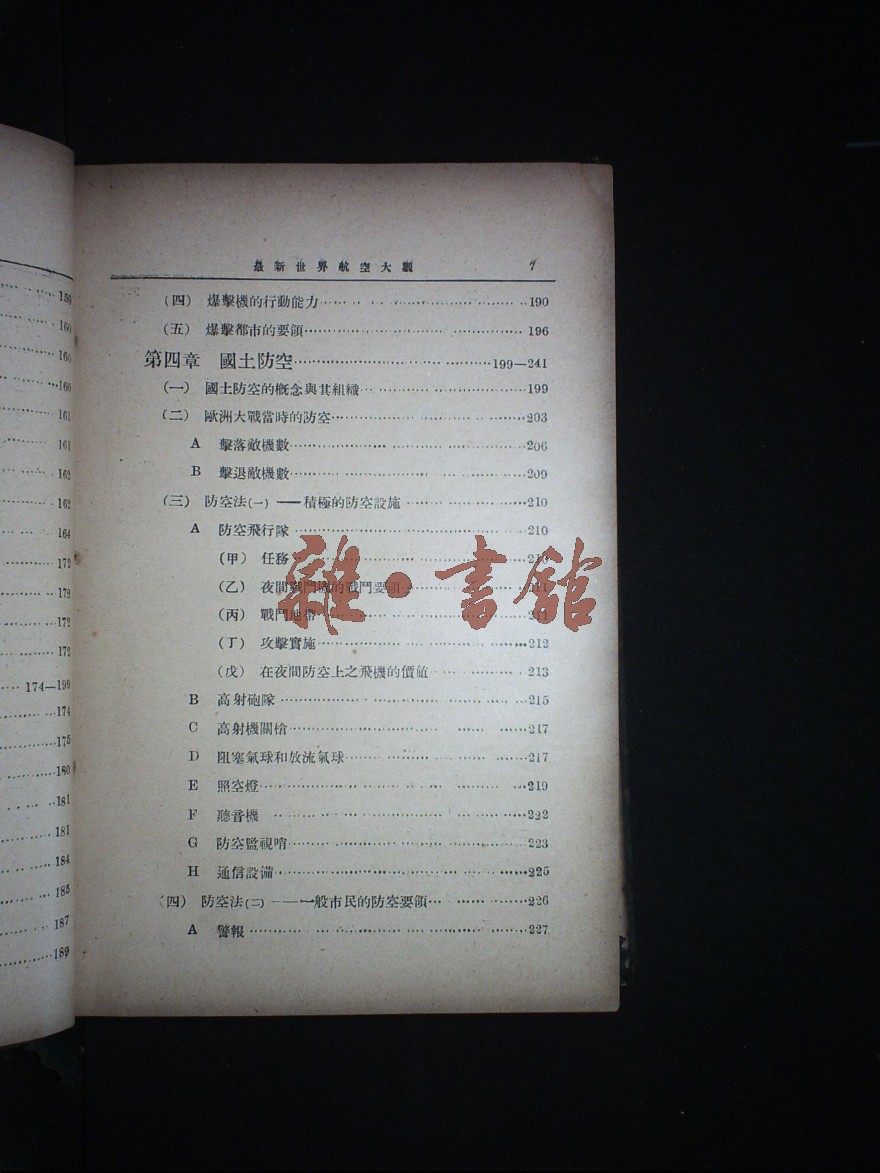 最新世界航空大觀 7
(四) 爆擊機的行動能力 190
(五) 爆擊都市的要領 196
第四章 國土防空 199—241
(一) 國土防空的槪念與其組織 199
(二) 歐洲大戰當時的防空 203
A 擊落敵機數 206
B 擊退敵機數 209
(三) 防空法(一)——積極的防空設施 210
A 防空飛行隊 210
(甲) 任務 210
(乙) 夜間戰鬥機的戰鬥要領 211
(丙) 戰鬥地帶 211
(丁) 攻擊實施 212
(戊) 在夜間防空上之飛機的價値 213
B 高射砲隊 215
C 高射機關槍 217
D 阻塞氣球和放流氣球 217
E 照空燈 219
F 聽音機 222
G 防空監視哨 223
H 通信設備 225
(四) 防空法(二)——一般市民的防空要領 226
A 警報 227
雜·書館
159
160
160
160
161
161
162
162
164
172
172
172
174—199
174
175
180
181
181
184
185
187
189